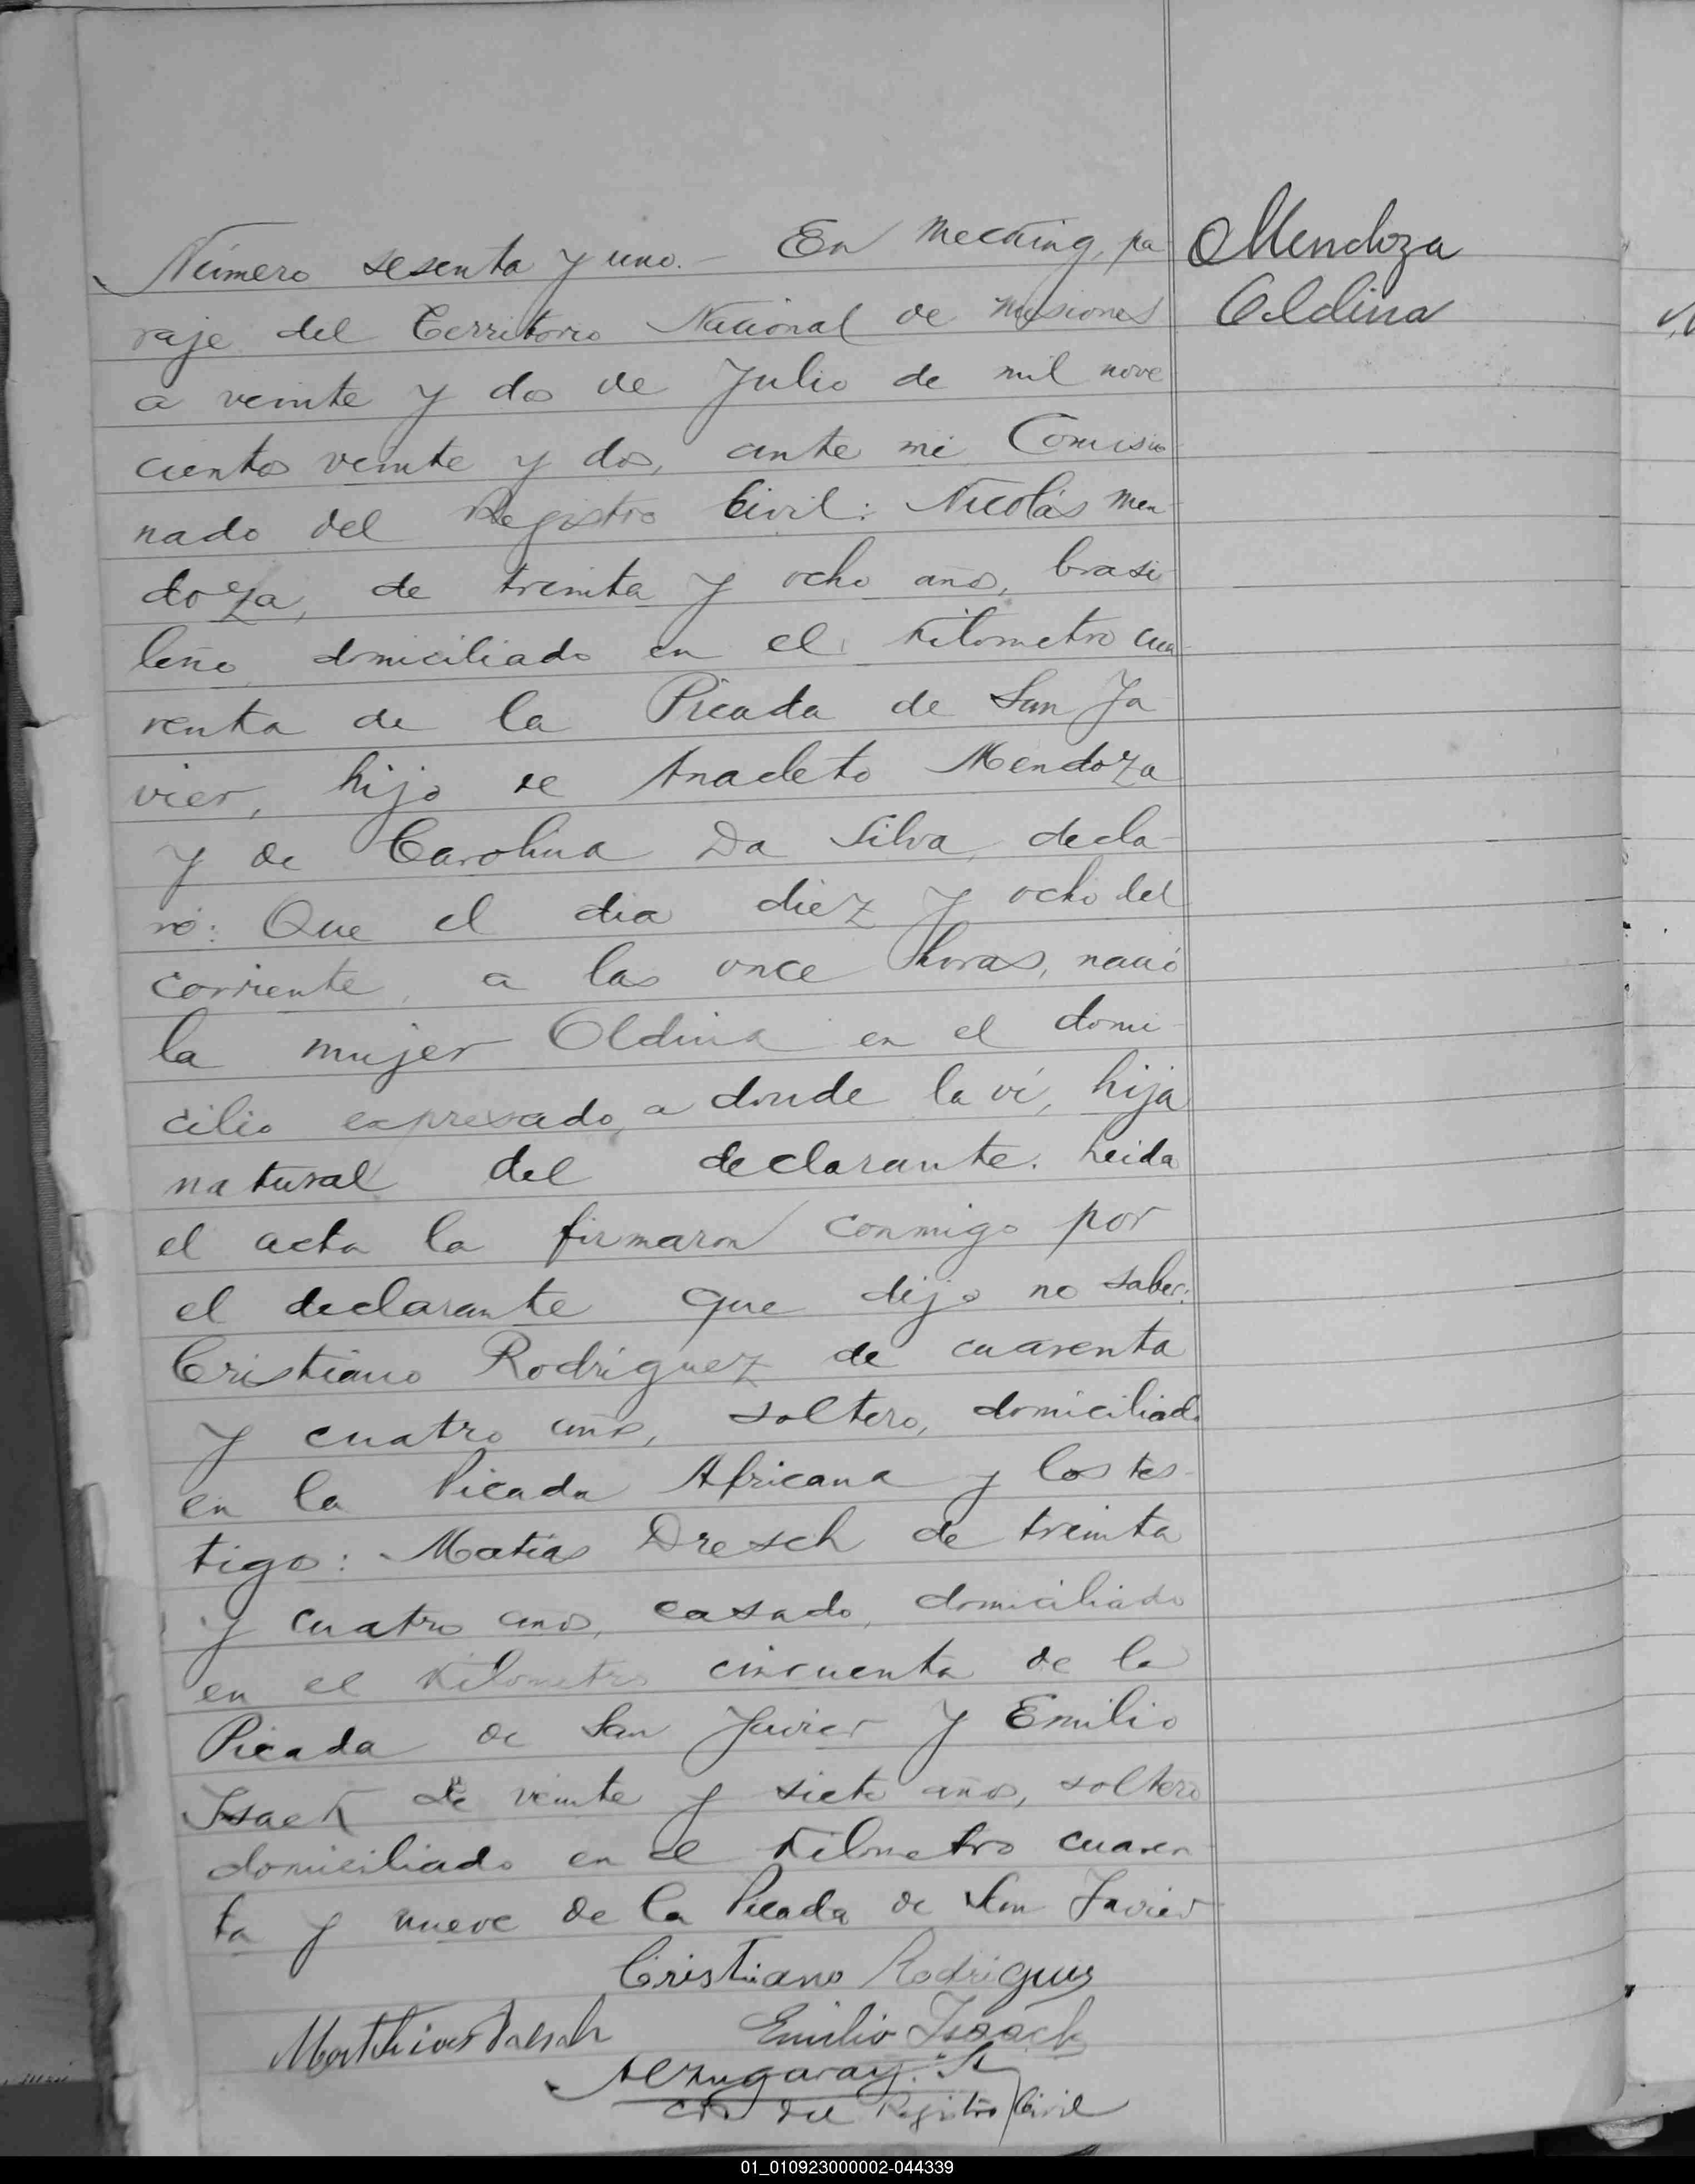 Número sesenta y uno.- En Mecking, pa
raje del Territorio Nacional de Misiones
a veinte y dos de Julio de mil nove
cientos veinte y dos, ante mi Comisio
nado del Registro Civil: Nicolás Men
doza, de treinta y ocho años, brasi
leño domiciliado en el Kilometro cua
renta de la Picada de San Ja
vier, hijo de Anacleto Mendoza
y de Carolina Da Silva, decla-
ró: Que el dia diez y ocho del
corriente, a las once horas, nació
la mujer Oldina en el domi-
cilio expresado, a donde la ví, hija
natural del declarante. Leida
el acta la firmaron conmigo por
el declarante que dijo no saber:
Cristiano Rodriguez de cuarenta
y cuatro años, soltero, domiciliado
en la Picada Africana y los tes-
tigos: Matias Dresch de treinta
y cuatro años, casado, domiciliado
en el Kilometro cincuenta de la
Picada de San Javier y Emilio
Isaek de veinte y siete años, soltero
domiciliado en el Kilometro cuaren-
ta y nueve de la Picada de San Javier
Mendoza
Oldina
Cristiano Rodriguez
Mathias Emilio Isaack
del Registro Civil
01_010923000002-044339